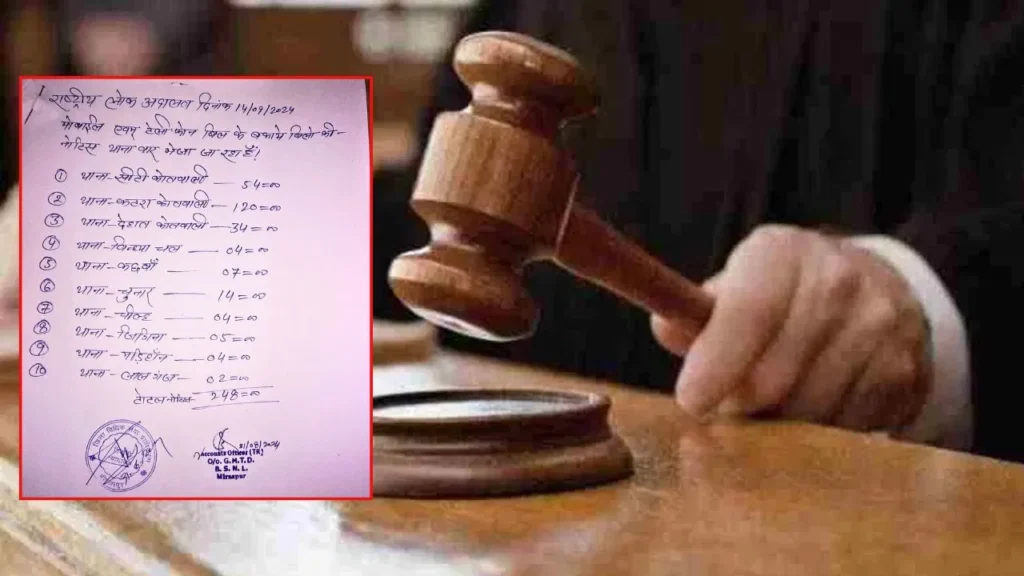 राष्ट्रीय लोक अदालत दिनांक 14/09/2024
मोबाईल एवम् टेलीफोन बिल के बकाये बिलो की-
नोटिस थाना वार भेजा जा रहा है!
① थाना-सीटी कोतवाली — 54=00
② थाना-कटरा कोतवाली — 120=00
③ थाना-देहात कोतवाली — 34=00
④ थाना-विन्ध्याचल — 04=00
⑤ थाना-कछवाँ — 07=00
⑥ थाना-चुनार — 14=00
⑦ थाना-चील्ह — 04=00
⑧ थाना-जिगना — 05=00
⑨ थाना-पडिहान — 04=00
⑩ थाना-लालगंज — 02=00
टोटल नोटिस 248=00
21/08/2024
Accounts Officer (TR)
O/o. G.M.T.D.
B. S. N. L.
Mirzapur